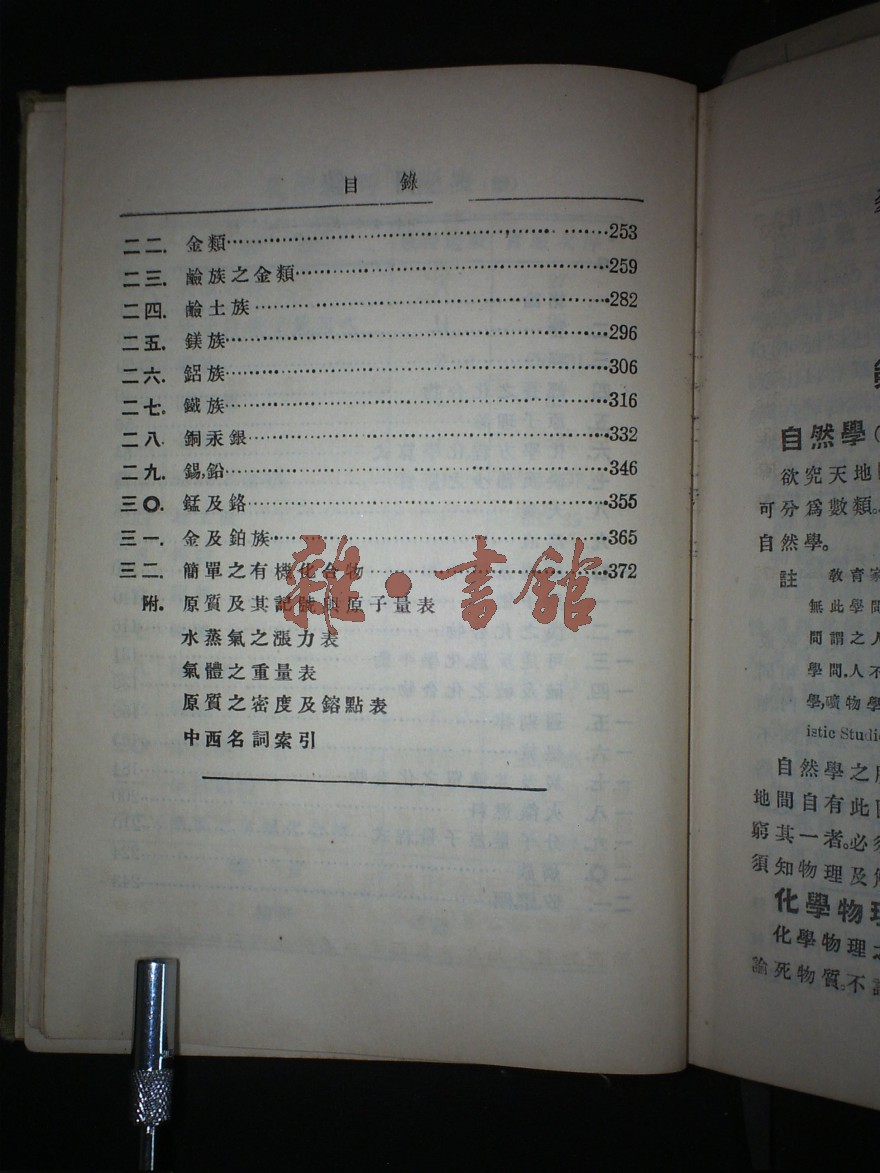 目錄
二二. 金類……253
二三. 鹼族之金類……259
二四. 鹼土族……282
二五. 鎂族……296
二六. 鋁族……306
二七. 鐵族……316
二八. 銅汞銀……332
二九. 錫,鉛……346
三〇. 錳及鉻……355
三一. 金及鉑族……365
三二. 簡單之有機化合物……372
附. 原質及其記號與原子量表
水蒸氣之漲力表
氣體之重量表
原質之密度及鎔點表
中西名詞索引
雜·書館
自然學(
欲究天地
可分爲數類。
自然學。
註 教育家
無此學問
間謂之人
學問.人不
學,礦物學
istic Studi
自然學之
地間自有此
窮其一者。必
須知物理及
化學物理
化學物理之
論死物質。不